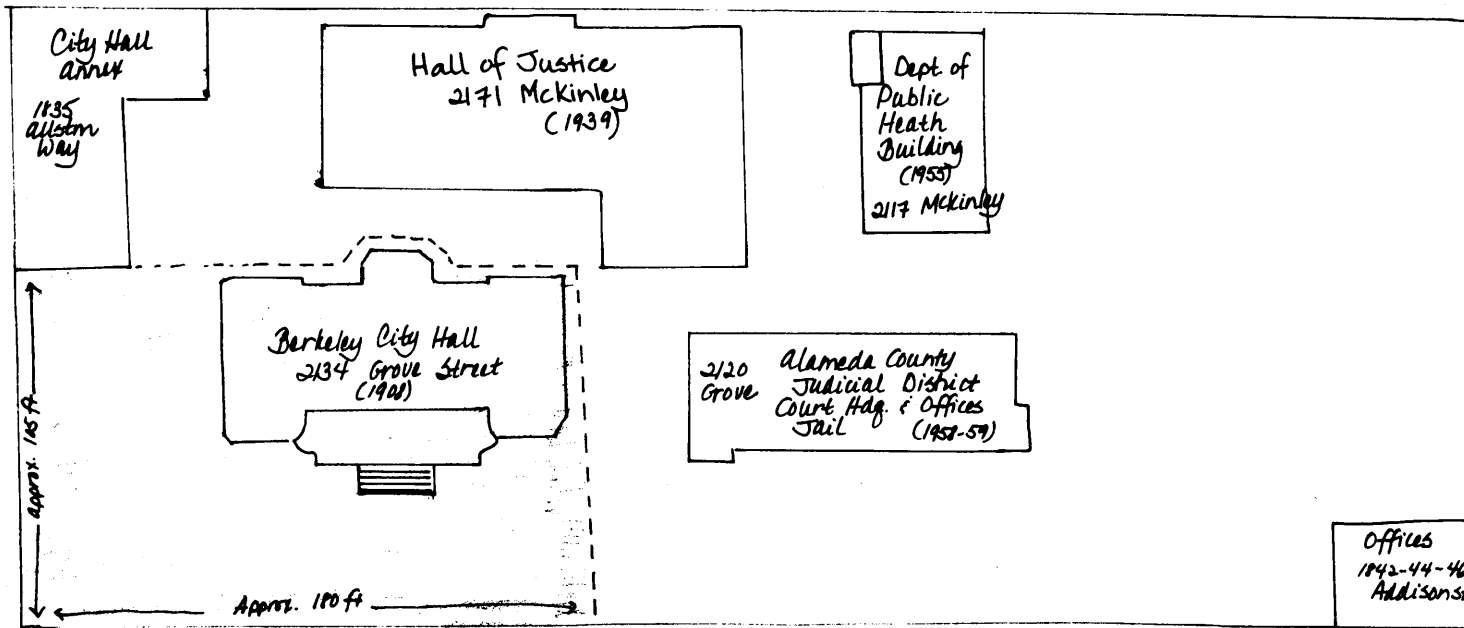 City Hall
annex
1835
allston
Way
Hall of Justice
2171 McKinley
(1939)
Dept. of
Public
Heath
Building
(1955)
2117 McKinley
Berkeley City Hall
2134 Grove Street
(1908)
2120
Grove
Alameda County
Judicial District
Court Hdq. & Offices
Jail (1958-59)
approx. 165 ft.
Approx. 180 ft
Offices
1842-44-46
Addison St